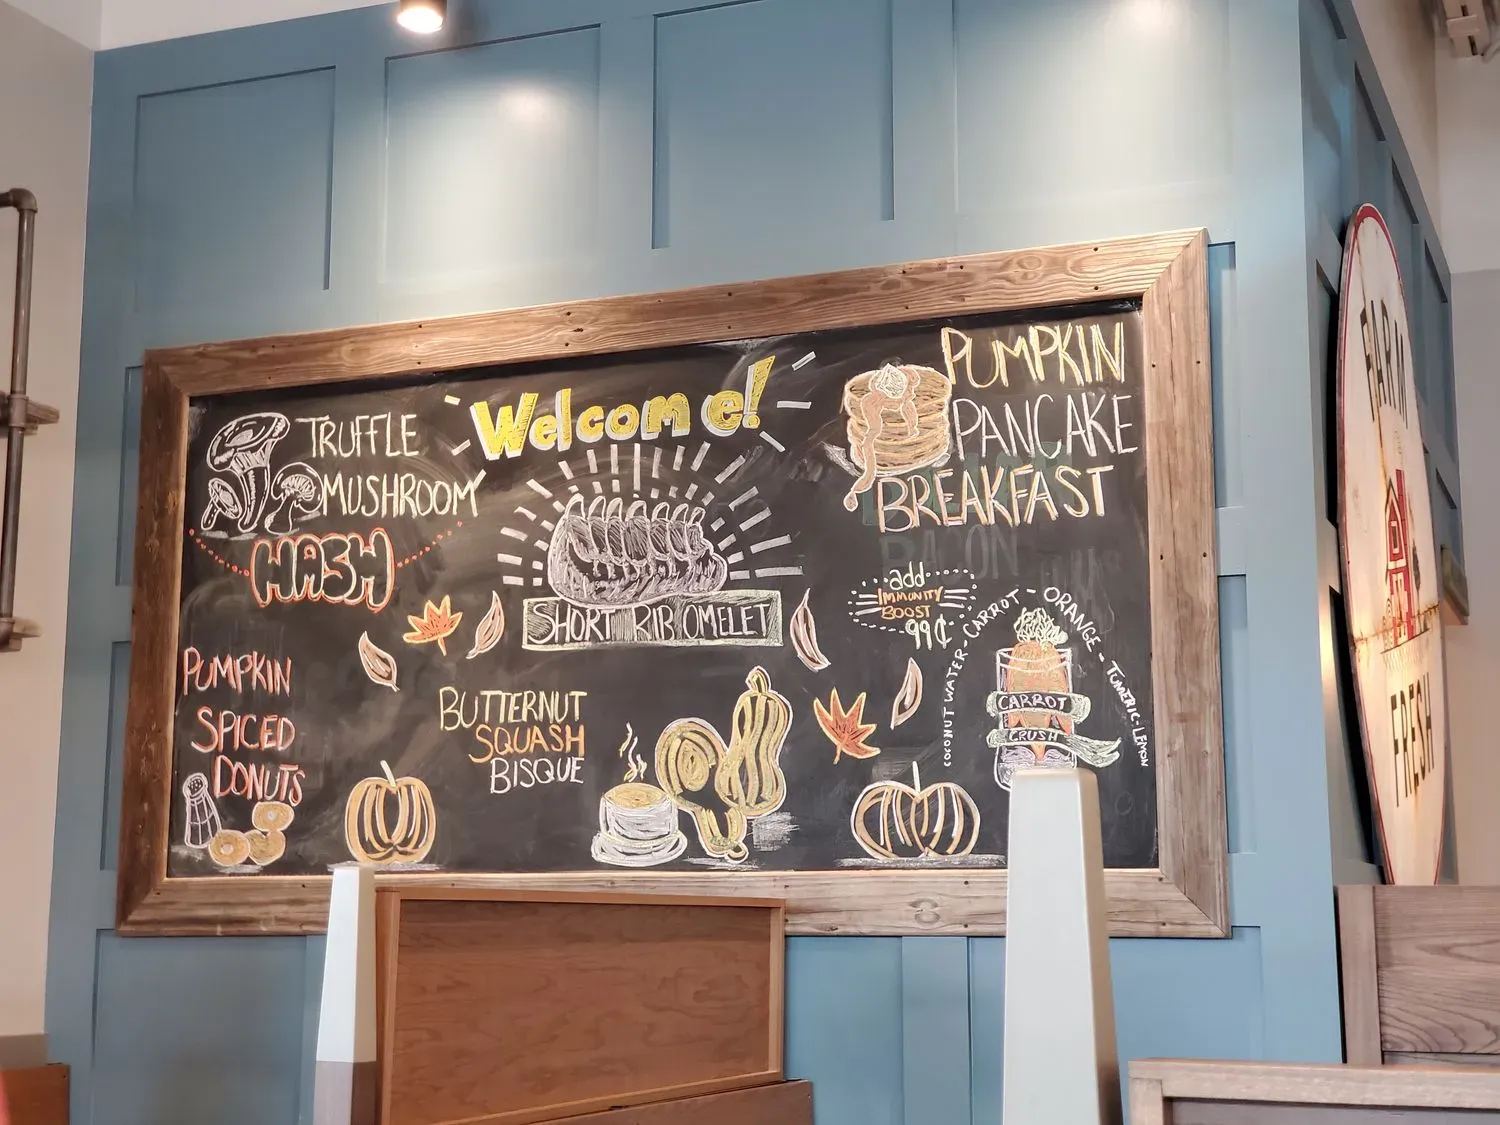 Welcome!
TRUFFLE
MUSHROOM
HASH
SHORT RIB OMELET
PUMPKIN
PANCAKE
BREAKFAST
BACON
add
IMMUNITY
BOOST
99¢
COCONUT WATER - CARROT - ORANGE - TUMERIC - LEMON
CARROT
CRUSH
PUMPKIN
SPICED
DONUTS
BUTTERNUT
SQUASH
BISQUE
FARM
FRESH